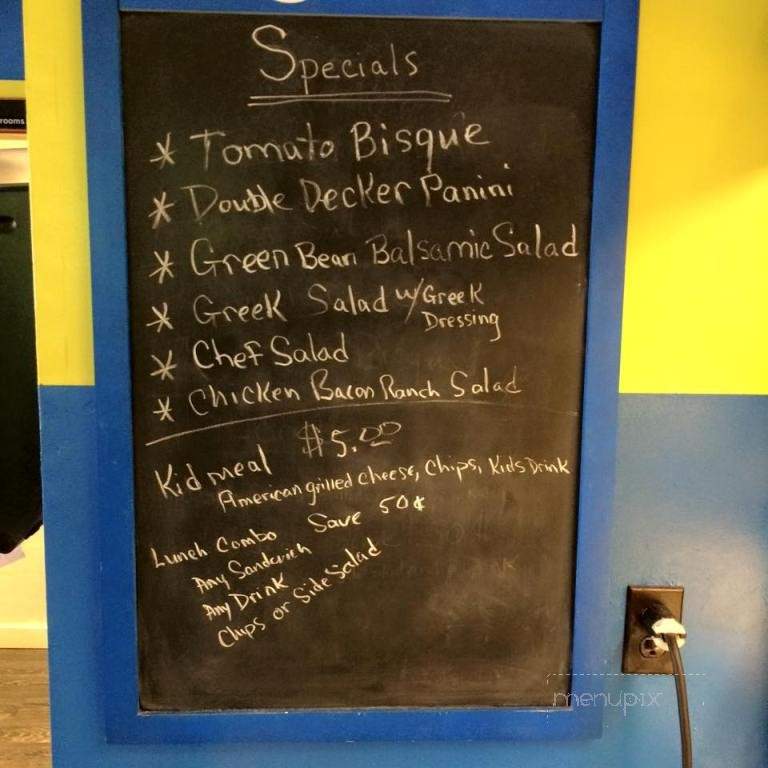 rooms
Specials
* Tomato Bisque
* Double Decker Panini
* Green Bean Balsamic Salad
* Greek Salad w/ Greek
Dressing
* Chef Salad
* Chicken Bacon Ranch Salad
Kid meal $5.00
American grilled cheese, Chips, Kids Drink
Lunch Combo Save 50¢
Any Sandwich
Any Drink
Chips or Side Salad
menupix